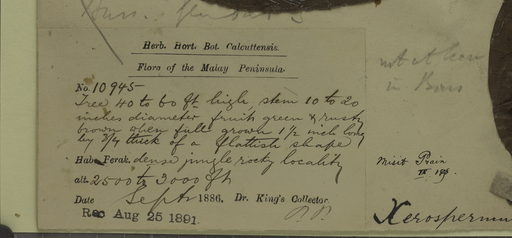 Herb. Hort. Bot. Calcuttensis.
Flora of the Malay Peninsula.
No. 10945
Tree 40 to 60 ft high, stem 10 to 20
inches diameter fruit green & rusty
brown when full grown 1½ inch long
by 3/4 thick of a flattish shape
Hab. Perak. dense jungle rocky locality
alt. 2500 to 3000 ft
Date Septr 1886. Dr. King's Collector
Rec Aug 25 1891.
not at Kew
in
Misit Prain
Xerospermum